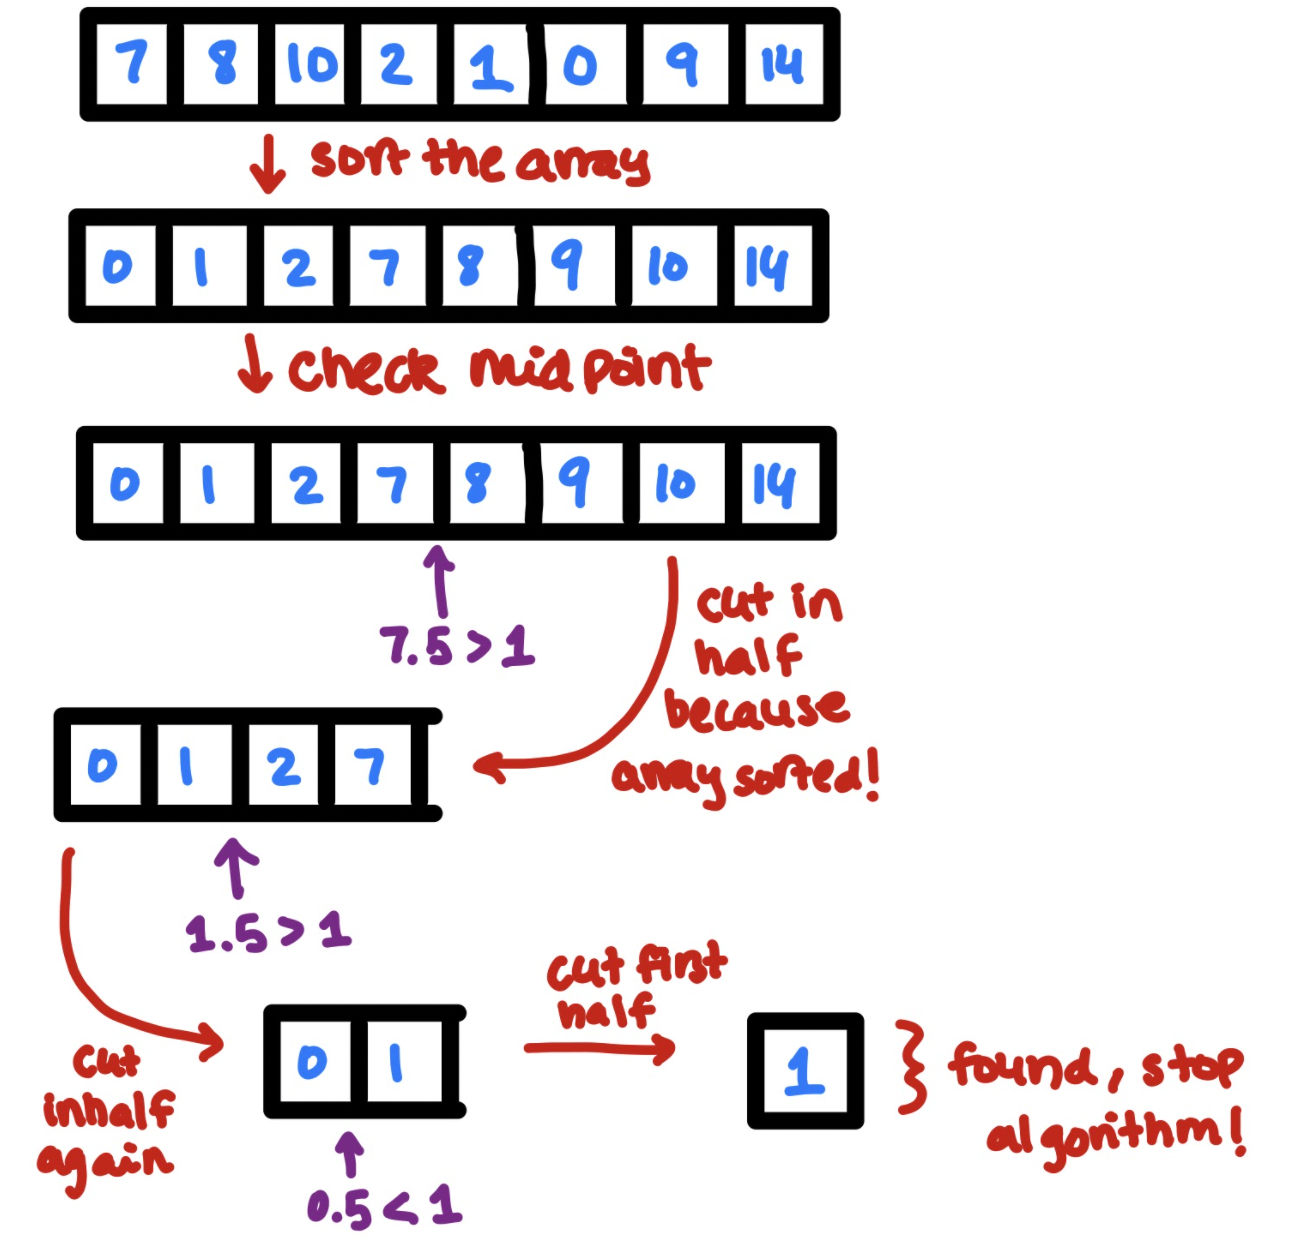 7 8 10 2 1 0 9 14
sort the array
0 1 2 7 8 9 10 14
check midpoint
0 1 2 7 8 9 10 14
7.5 > 1
cut in
half
because
array sorted!
0 1 2 7
1.5 > 1
cut
in half
again
0 1
0.5 < 1
cut first
half
1
found, stop
algorithm!